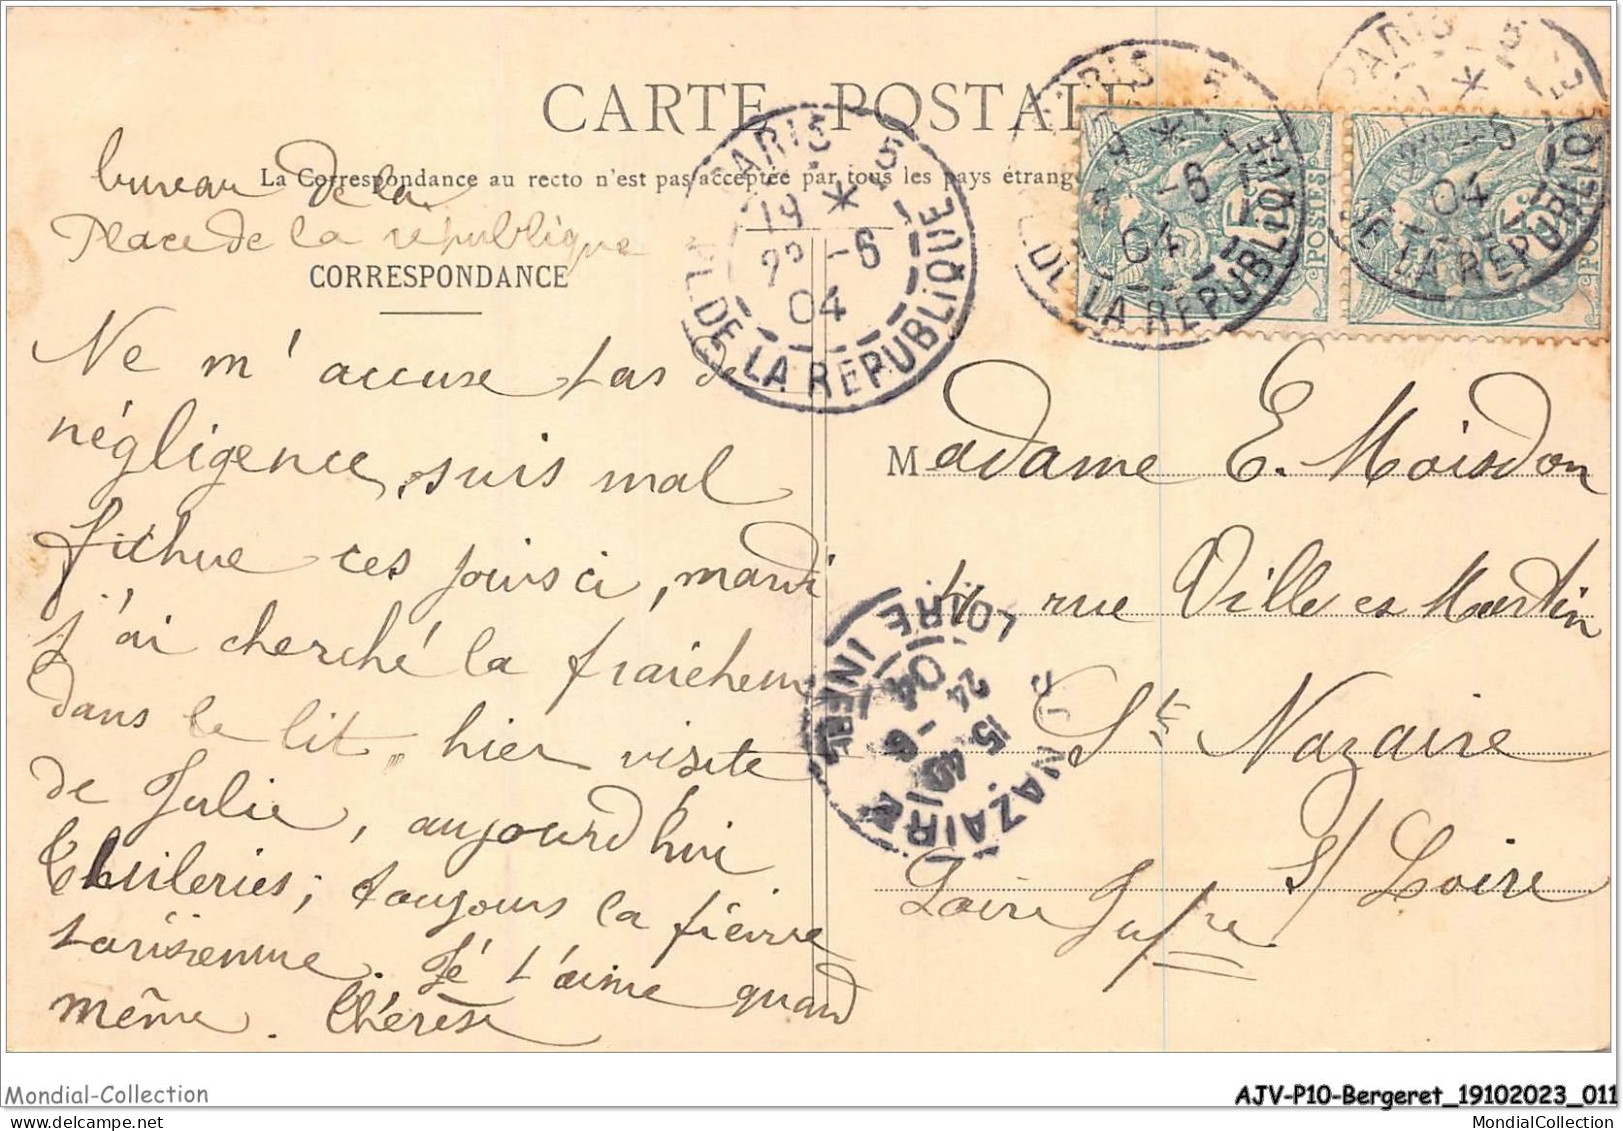 CARTE POSTALE
La Correspondance au recto n'est pas acceptée par tous les pays étrang
bureau de la
Place de la république
CORRESPONDANCE
Ne m'accuse pas de
négligence, suis mal
fichue ces jours ci, mardi
j'ai cherché la fraicheur
dans le lit, hier visite
de Julie, aujourd'hui
tuileries; toujours la fièvre
parisienne. Je t'aime quand
même. Thérèse
PARIS - 5
19 * 23 -6
04
PL. DE LA RÉPUBLIQUE
PARIS - 5
-6
04
PL. DE LA RÉPUBLIQUE
POSTES
5
PARIS - 5
04
PL. DE LA RÉPUBLIQUE
POSTES
5
Madame E. Moisdon
rue Ville ès Martin
St Nazaire
S/ Loire
Loire Infre
ST NAZAIRE
15 40
24 -6
04
LOIRE INFRE
Mondial-Collection
AJV-P10-Bergeret_19102023_011
MondialCollection.com